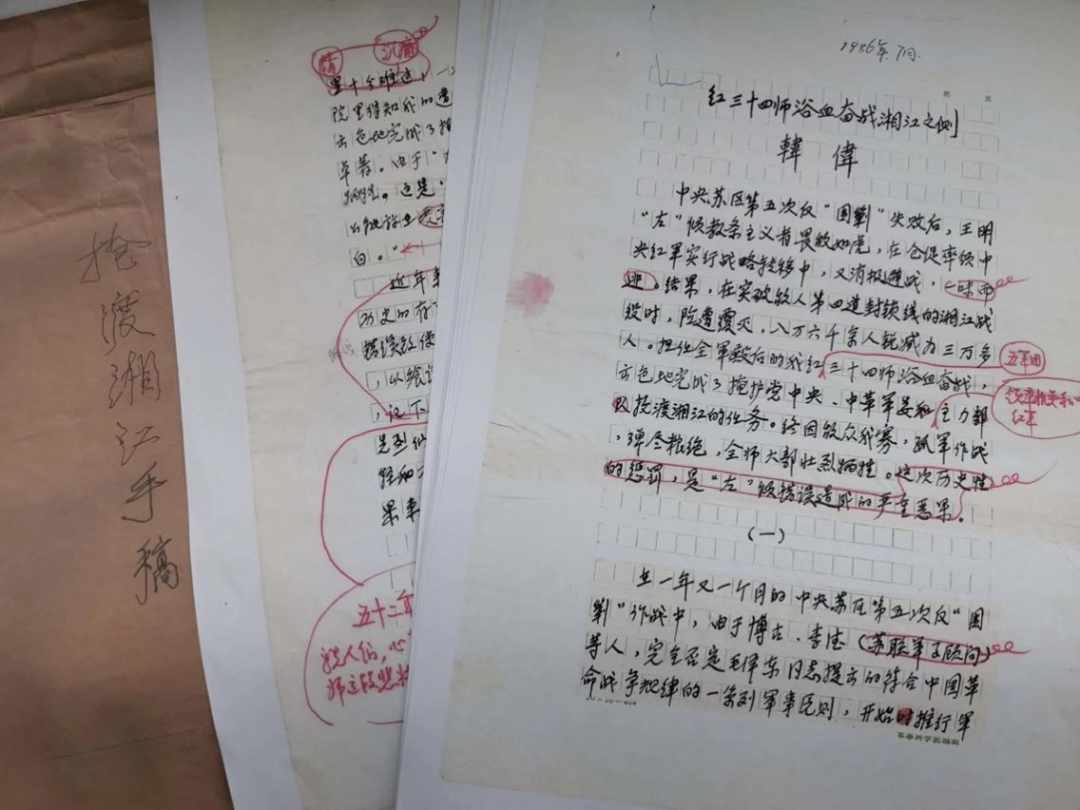 掩渡湘江手稿
沉痛
里十分难过，一
院里得知我的遗
出色地完成了掩
卓著。由于“
牺牲。这是
白。”
近年来
历史的存
，以给
，记下
先烈们
果事
五十二年
1986年7月
红三十四师浴血奋战湘江之侧
韓偉
中央苏区第五次反“围剿”失败后，王明
“左”倾教条主义者畏敌如虎，在仓促率领中
央红军实行战略转移中，又消极避战，一味西
逃。结果，在突破敌人第四道封锁线的湘江战
役时，险遭覆灭，八万六千余人锐减为三万多
人。担任全军殿后的我红三十四师浴血奋战，
五军团
出色地完成了掩护党中央、中革军委和主力部
红军
队抢渡湘江的任务。终因敌众我寡，孤军作战
，弹尽粮绝，全师大部壮烈牺牲。这次历史性
的惩罚，是“左”倾错误造成的严重恶果。
（一）
在一年又一个月的中央苏区第五次反“围
剿”作战中，由于博古、李德（苏联军事顾问）
等人，完全否定毛泽东同志提出的符合中国革
命战争规律的一系列军事原则，开始时推行军